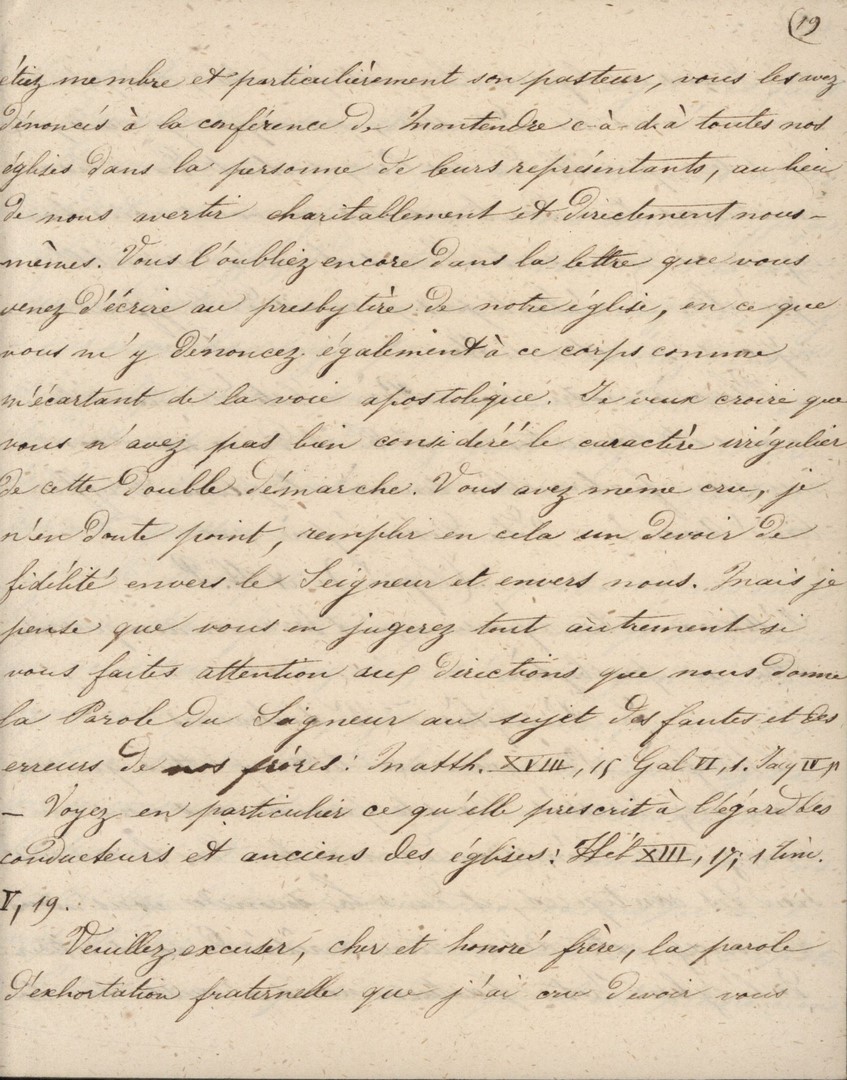 19
étiez membre et particulièrement son pasteur, vous les avez
dénoncés à la conférence de Montendre c-à-d-à toutes nos
églises dans la personne de leurs représentants, au lieu
de nous avertir charitablement et directement nous-
mêmes. Vous l'oubliez encore dans la lettre que vous
venez d'écrire au presbytère de notre église, en ce que
vous m'y dénoncez également à ce corps comme
m'écartant de la voie apostolique. Je veux croire que
vous n'avez pas bien considéré le caractère irrégulier
de cette double démarche. Vous avez même cru, je
n'en doute point, remplir en cela un devoir de
fidélité envers le Seigneur et envers nous. Mais je
pense que vous en jugerez tout autrement si
vous faites attention aux directions que nous donne
la Parole du Seigneur au sujet des fautes et des
erreurs de nos frères: Matth. XVIII, 15 Gal VI, 1. Jaq IV,
– Voyez en particulier ce qu'elle prescrit à l'égard des
conducteurs et anciens des églises: Héb XIII, 17; 1 Tim.
V, 19.
Veuillez excuser, cher et honoré frère, la parole
d'exhortation fraternelle que j'ai cru devoir vous